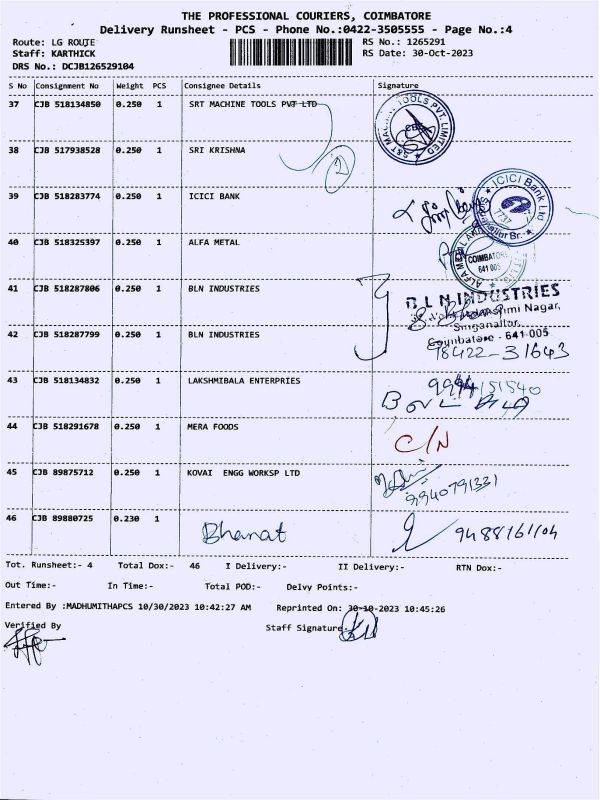 THE PROFESSIONAL COURIERS, COIMBATORE
Delivery Runsheet - PCS - Phone No.:0422-3505555 - Page No.:4
Route: LG ROUTE
RS No.: 1265291
Staff: KARTHICK
RS Date: 30-Oct-2023
DRS No.: DCJB126529104
S No Consignment No Weight PCS Consignee Details Signature
37 CJB 518134850 0.250 1 SRT MACHINE TOOLS PVT LTD
S&T MACHINE TOOLS PVT. LIMITED
38 CJB 517938528 0.250 1 SRI KRISHNA
2
39 CJB 518283774 0.250 1 ICICI BANK
ICICI Bank Ltd
7737
40 CJB 518325397 0.250 1 ALFA METAL
COIMBATORE
641 005
41 CJB 518287806 0.250 1 BLN INDUSTRIES
B L N INDUSTRIES
Nagar,
Singanallur,
Coimbatore - 641 005
42 CJB 518287799 0.250 1 BLN INDUSTRIES
18422-31643
43 CJB 518134832 0.250 1 LAKSHMIBALA ENTERPRIES
9994151540
44 CJB 518291678 0.250 1 MERA FOODS
C/N
45 CJB 89875712 0.250 1 KOVAI ENGG WORKSP LTD
9940791331
46 CJB 89880725 0.230 1 Bharat
9488161104
Tot. Runsheet:- 4 Total Dox:- 46 I Delivery:- II Delivery:- RTN Dox:-
Out Time:- In Time:- Total POD:- Delvy Points:-
Entered By :MADHUMITHAPCS 10/30/2023 10:42:27 AM Reprinted On: 30-10-2023 10:45:26
Verified By
Staff Signature